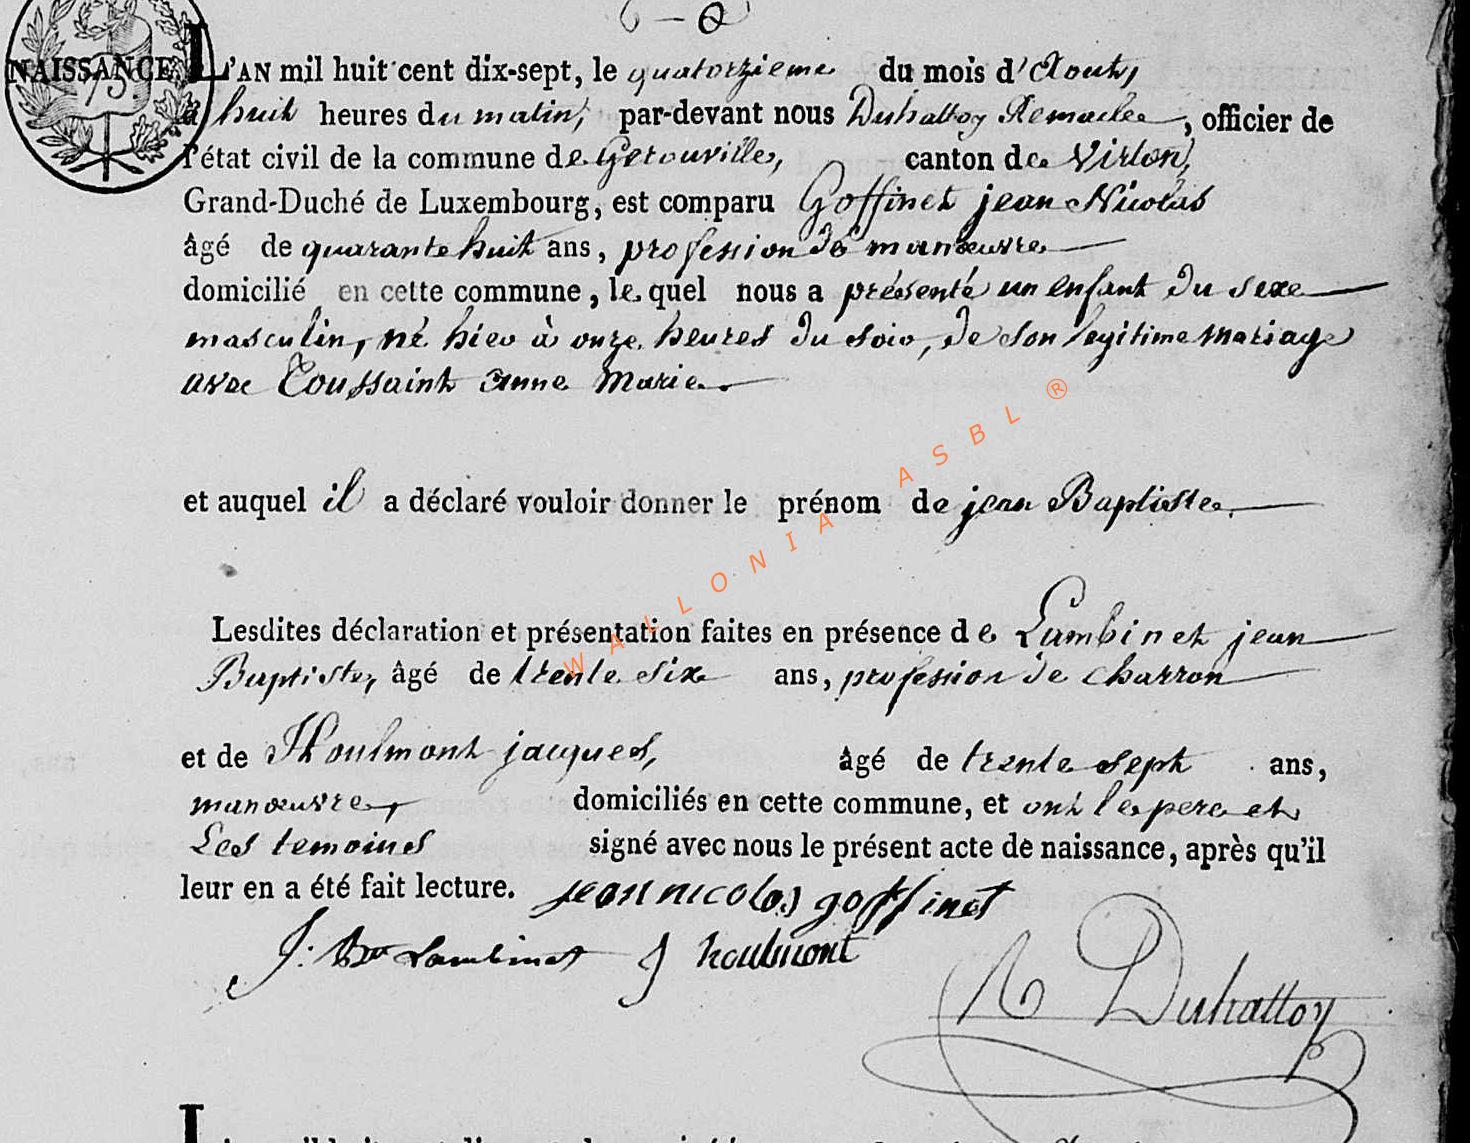 NAISSANCE. L'AN mil huit cent dix-sept, le quatorzieme du mois d'Aout,
à huit heures du matin, par-devant nous Duhattoy Remacle, officier de
l'état civil de la commune de Gerouville, canton de Virton,
Grand-Duché de Luxembourg, est comparu Goffinet jean Nicolas
âgé de quarante huit ans, profession de manœuvre
domicilié en cette commune, le quel nous a présenté un enfant du sexe
masculin, né hier à onze heures du soir, de son legitime mariage
avec Toussaint anne Marie.
et auquel il a déclaré vouloir donner le prénom de jean Baptiste.
Lesdites déclaration et présentation faites en présence de Lambinet jean
Baptiste, âgé de trente six ans, profession de charron
et de Houlmont jacques, âgé de trente sept ans,
manœuvre, domiciliés en cette commune, et ont le pere et
Les temoins signé avec nous le présent acte de naissance, après qu'il
leur en a été fait lecture. jean nicolas goffinet
J. Bte Lambinet J houlmont
R Duhattoy
WALLONIA ASBL ®